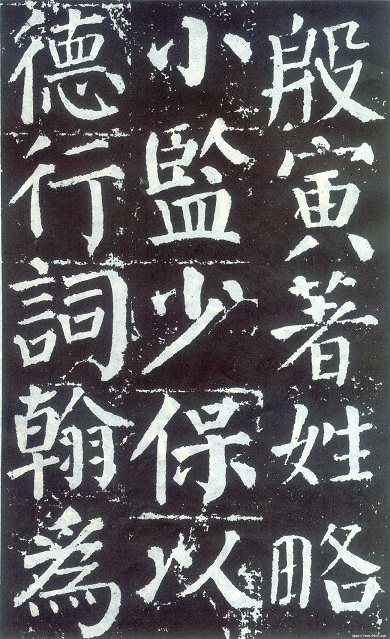 殷寅著姓略
小監少保以
德行詞翰為